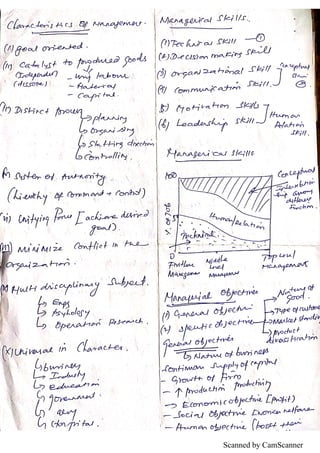 Characteristics of Management
(i) goal oriented.
(ii) Catalyst to produced goods
(Independent)
- Labour
- Material
- Capital.
(iii) Distinct Process
planning
Organising
Staffing direction
Controlling.
System of Authority
(hierarchy of command & control)
Unifying Force [achieve desired
goal)
Minimize conflict in the
Organization.
Multi disciplinary Subject.
Engg
Psychology
Operation Research.
(x) Universal in Character.
business
Industry
Education
government.
Army
Hospital.
Managerial Skills.
(1) Technical Skill —①
(2) Decision making Skill
(3) Organizational Skill
Conceptual
(4) Communication Skill.
(5) Motivation Skills
Human
Relation
Skill.
(6) Leadership Skill.
Managerial Skills
100
Conceptual
Human relation
Technical
% of Job
50
0
Frontline
Managment
Middle
level
Top level
Management
Managerial Objectives
(1) General Objective
(2) Specific Objective
Nature of
Good.
Type of customer
Market standing
product
diversification
General Objectives
Nature of business
- Continous Supply of capital
- Growth of Firm
- ↑ production productivity
- Economic objective [Profit)
- Social Objective (women welfare
- Human Objective (
Scanned by CamScanner